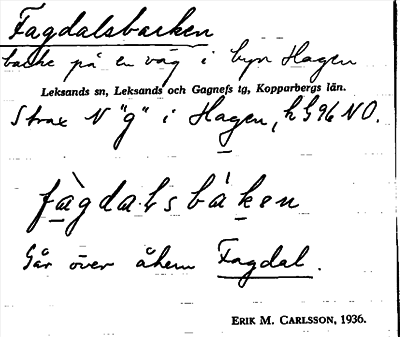 Fagdalsbacken
backe på en väg i byn Hagen
Leksands sn, Leksands och Gagnefs tg, Kopparbergs län.
Strax N "g" i Hagen, h G96 NO.
fàgda·ḷsbáken
Går över åkern Fagdal.
ERIK M. CARLSSON, 1936.